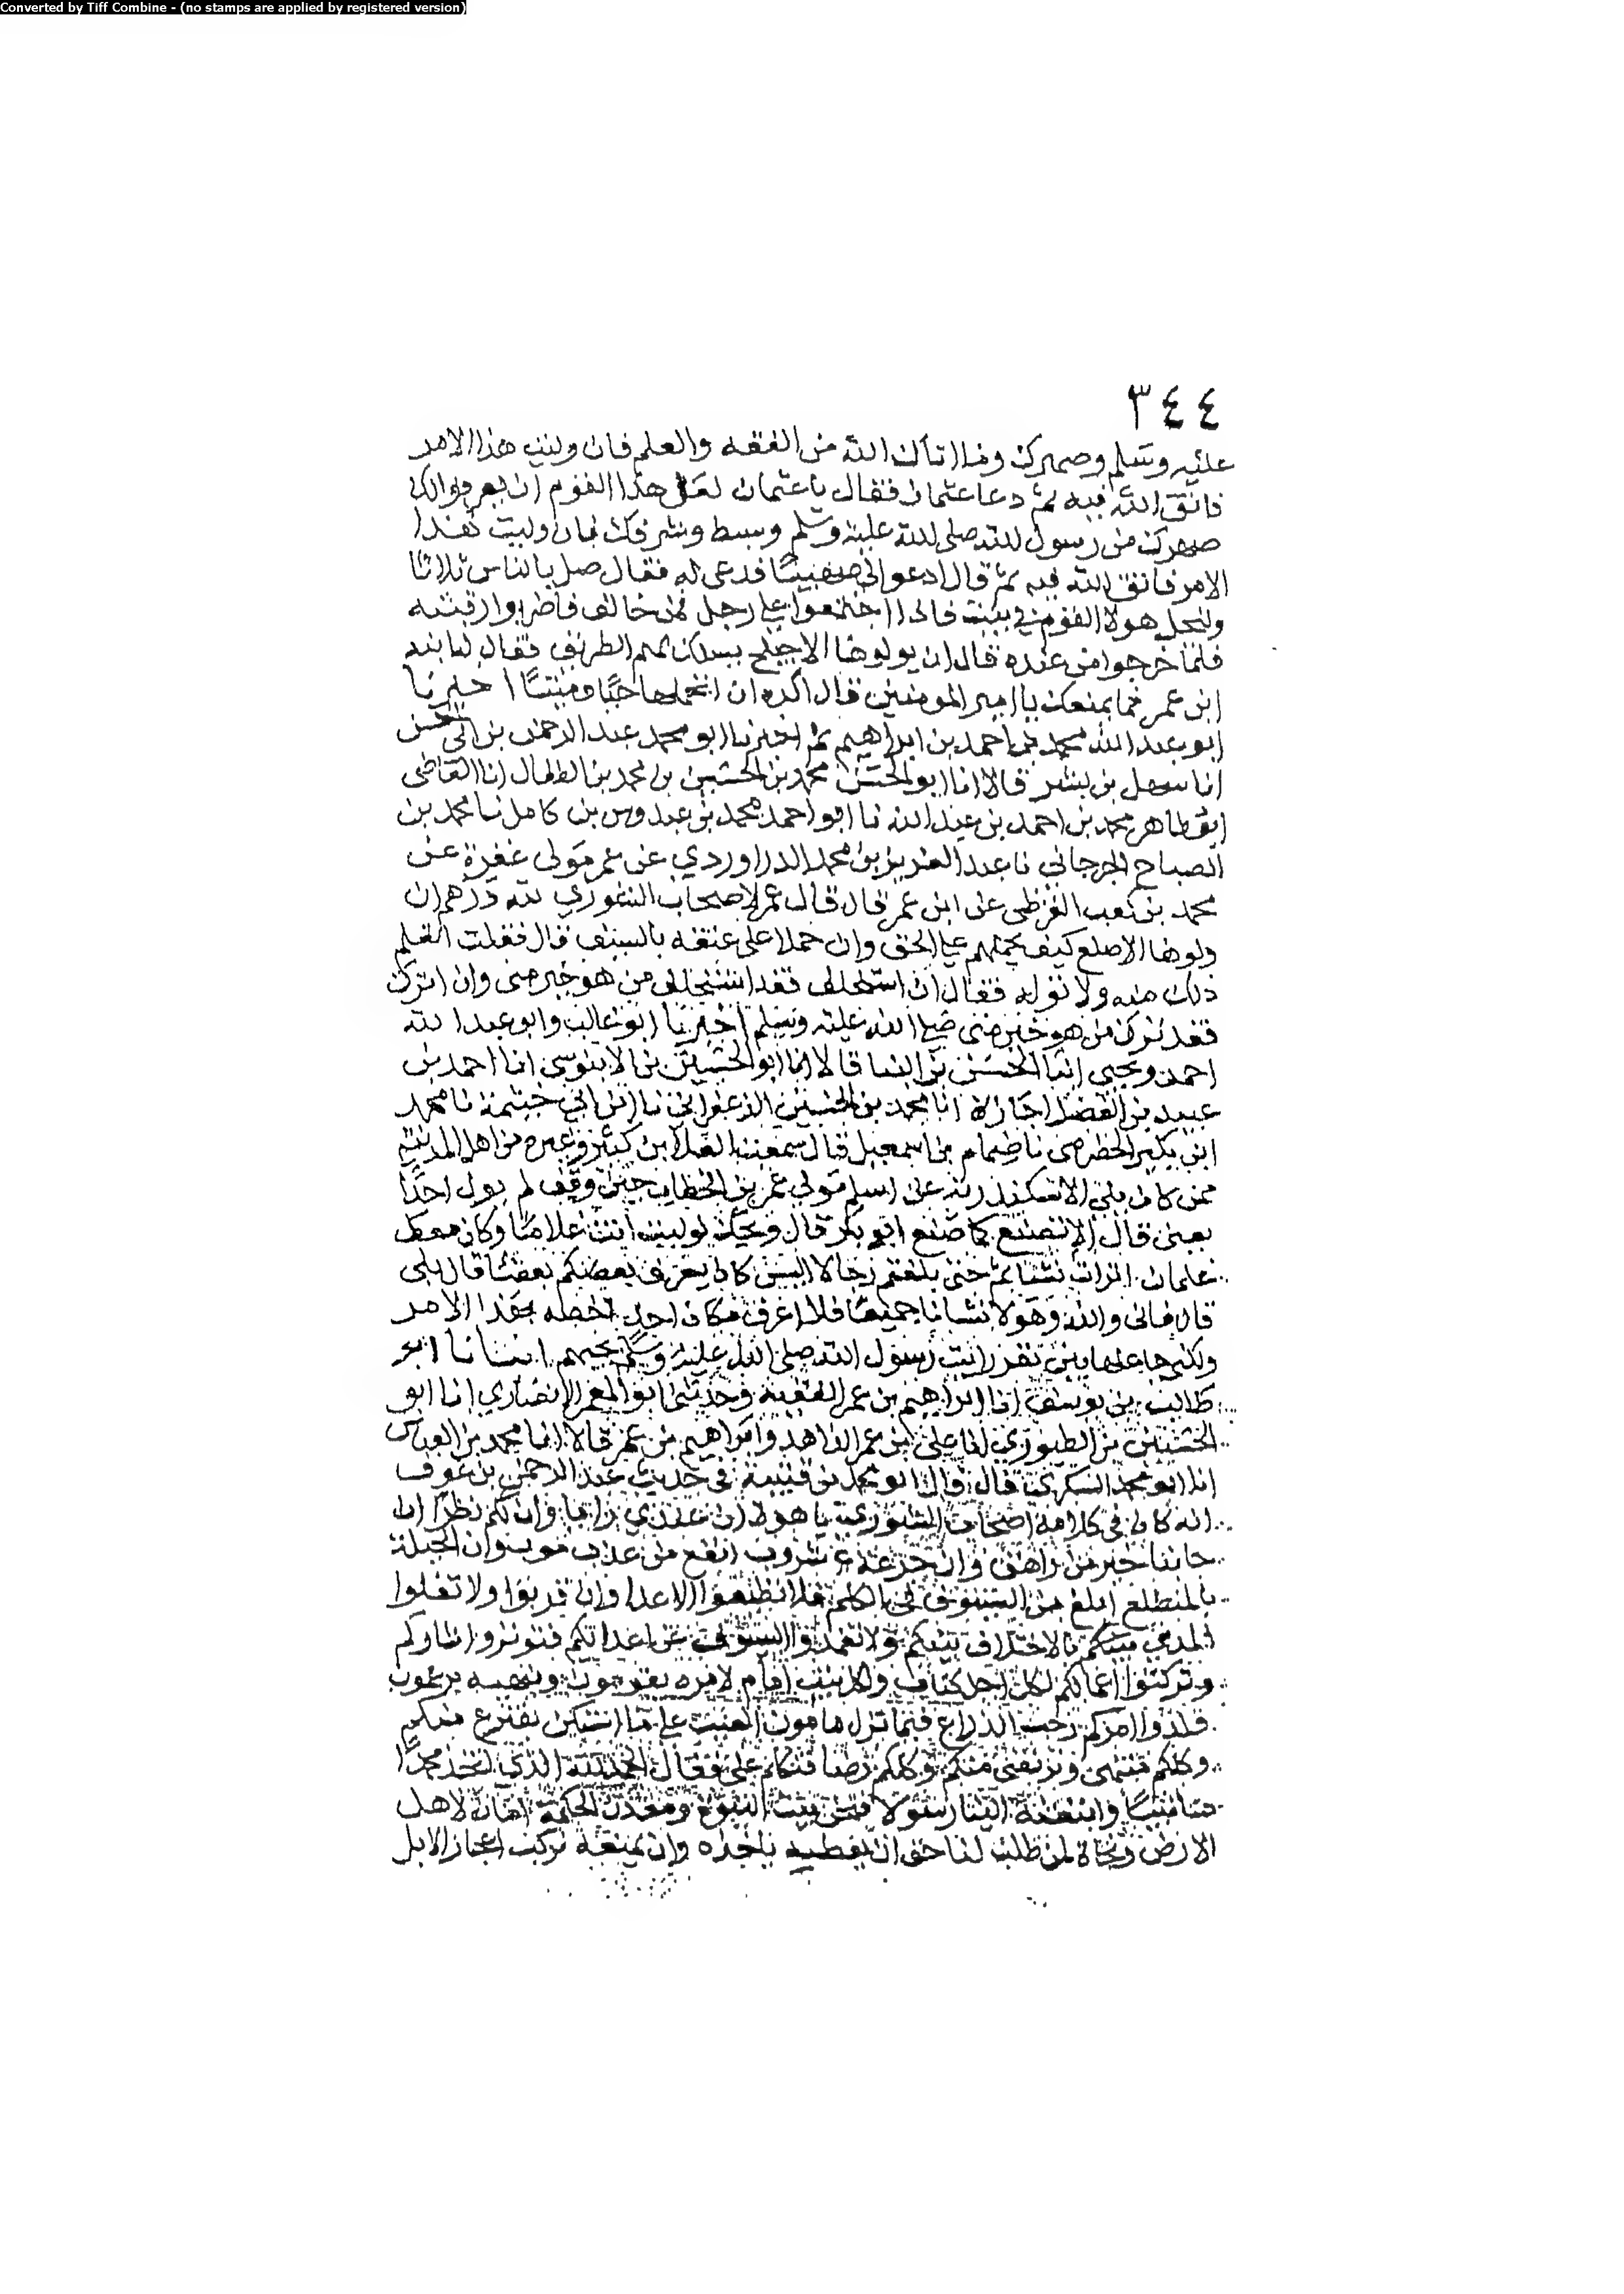 Converted by Tiff Combine - (no stamps are applied by registered version)
٣٤٤
عليه وسلم وصهرك وما اتاك الله من الفقه والعلم فان وليت هذا الامر
فاتق الله فيه ثم دعا عثمان فقال يا عثمان لعل هذا القوم ان يعرفوا لك
صهرك من رسول الله صلى الله عليه وسلم وشرفك فان وليت هذا
الامر فاتق الله فيه ثم قال ادعوا لي صهيبا فدعي له فقال صل بالناس ثلاثا
وليخل هولا القوم في بيت فاذا اجتمعوا على رجل فمن خالف فاضربوا رقبته
فلما خرجوا من عنده قال ان يولوها الاجيلح يسلك بهم الطريق فقال له ابنه
ابن عمر فما يمنعك يا امير المومنين قال اكره ان اتحملها حيا وميتا اخبرنا
ابو عبد الله محمد بن احمد بن ابراهيم ثم اخبرنا ابو محمد عبد الرحمن بن ابي الحسن
انا سهل بن بشر قالا انا ابو الحسن محمد بن الحسين بن محمد بن الطفال انا القاضي
ابو طاهر محمد بن احمد بن عبد الله نا ابو احمد محمد بن عبدوس بن كامل نا محمد بن
الصباح الجرجاني نا عبد العزيز بن محمد الدراوردي عن عمر مولى غفرة عن
محمد بن كعب القرظي عن ابن عمر قال قال عمر لاصحاب الشوري لله درهم ان
ولوها الاصلع كيف يحملهم على الحق وان حملا على عنقه بالسيف قال فقلت اتعلم
ذلك منه ولا توله فقال ان استخلف فقد استخلف من هو خير مني وان اترك
فقد ترك من هو خير مني صلى الله عليه وسلم اخبرنا ابو غالب وابو عبد الله
احمد ويحيى ابنا الحسن بن البنا قالا انا ابو الحسين بن الابنوسي انا احمد بن
عبيد بن الفضل اجازة انا محمد بن الحسين الزعفراني نا ابن ابي خيثمة نا محمد
ابن بكير الحضرمي نا ضمام بن اسمعيل قال سمعت العلا بن كثير وغيره من اهل المدينة
ممن كان يلي الاسكندرية على اسلم مولي عمر بن الخطاب حين وقف لم يول احدا
يعني قال الا تصنع كما صنع ابو بكر قال ويحك لو ليت انت غلاما وكان معك
غلمان اتراب نشاتم حتى بلغتم رجالا اليس كان يعرف بعضكم بعضا قال بلى
قال فاني والله وهولا نشانا جميعا فلا اعرف مكان احد اخصه بهذا الامر
ولكني جاعلها بين نفر رايت رسول الله صلى الله عليه وسلم يحبهم انبانا ابو
طالب بن يوسف انا ابراهيم بن عمر الفقيه وحدثنا ابو المعمر الانصاري انا ابو
الحسين بن الطيوري انا علي بن عمر الزاهد وابراهيم بن عمر قالا انا محمد بن العباس
انا ابو محمد السكري قال قال ابو محمد بن قتيبة في حديث عبد الرحمن بن عوف
انه كان في كلامه اصحاب الشوري يا هولا ان عندي رايا وان لكم نظرا ان
حابيا خير من زاهق وان جرعة شروب انفع من عذب موب وان الحيلة
بالمنطق ابلغ من السيوف في الكلم فلا تطيعوا الاعدا وان قربوا ولا تفلوا
المدى بينكم بالاختلاف بينكم ولا تغمدوا السيوف عن اعدائكم فتوتروا ثاركم
وتولتوا اعمالكم لكل اجل كتاب ولكل بيت امام لامره يقومون وبنهيه يرعون
قلدوا امركم رحب الذراع فيما نزل مامون الغيب على ما استكن يقترع منكم
وكلكم منتهى ويرتضى منكم وكلكم رضا فتكلم علي فقال الحمد لله الذي اتخذ محمدا
منا نبيا وابتعثه الينا رسولا فنحن بيت النبوة ومعدن الحكمة امان لاهل
الارض ونجاة لمن طلب لنا حق ان نعطيه ناخذه وان نمنعه نركب اعجاز الابل